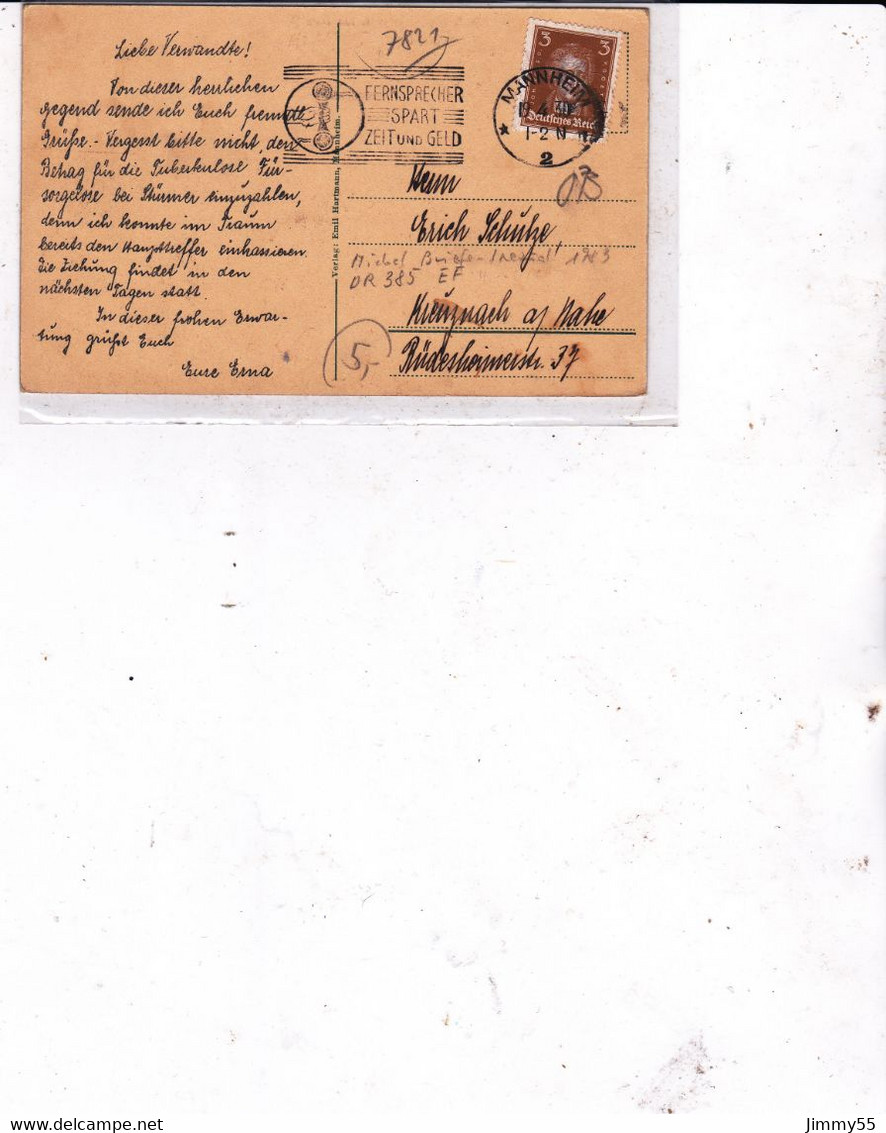 Liebe Verwandte!
Von dieser herrlichen
gegend sende ich Euch
Grüße. - Vergesst bitte nicht, den
Betrag für die Tuberkulose Für-
sorgelose bei Stürmer einzuzahlen,
denn ich konnte im Traum
bereits den Haupttreffer einkassieren.
Die Ziehung findet in den
nächsten Tagen statt.
In dieser frohen Erwar-
tung grüßt Euch
Eure Erna
Verlag: Emil Hartmann, Mannheim.
7821
FERNSPRECHER
SPART
ZEIT UND GELD
MANNHEIM
1-2 N
2
3 3
Deutsches Reich
Herrn
Erich Schulze,
Michel Briefe 1983
DR 385 EF
Kreuznach a/ Nahe
Rüdesheimerstr. 37
5,-
delcampe.net
Jimmy55